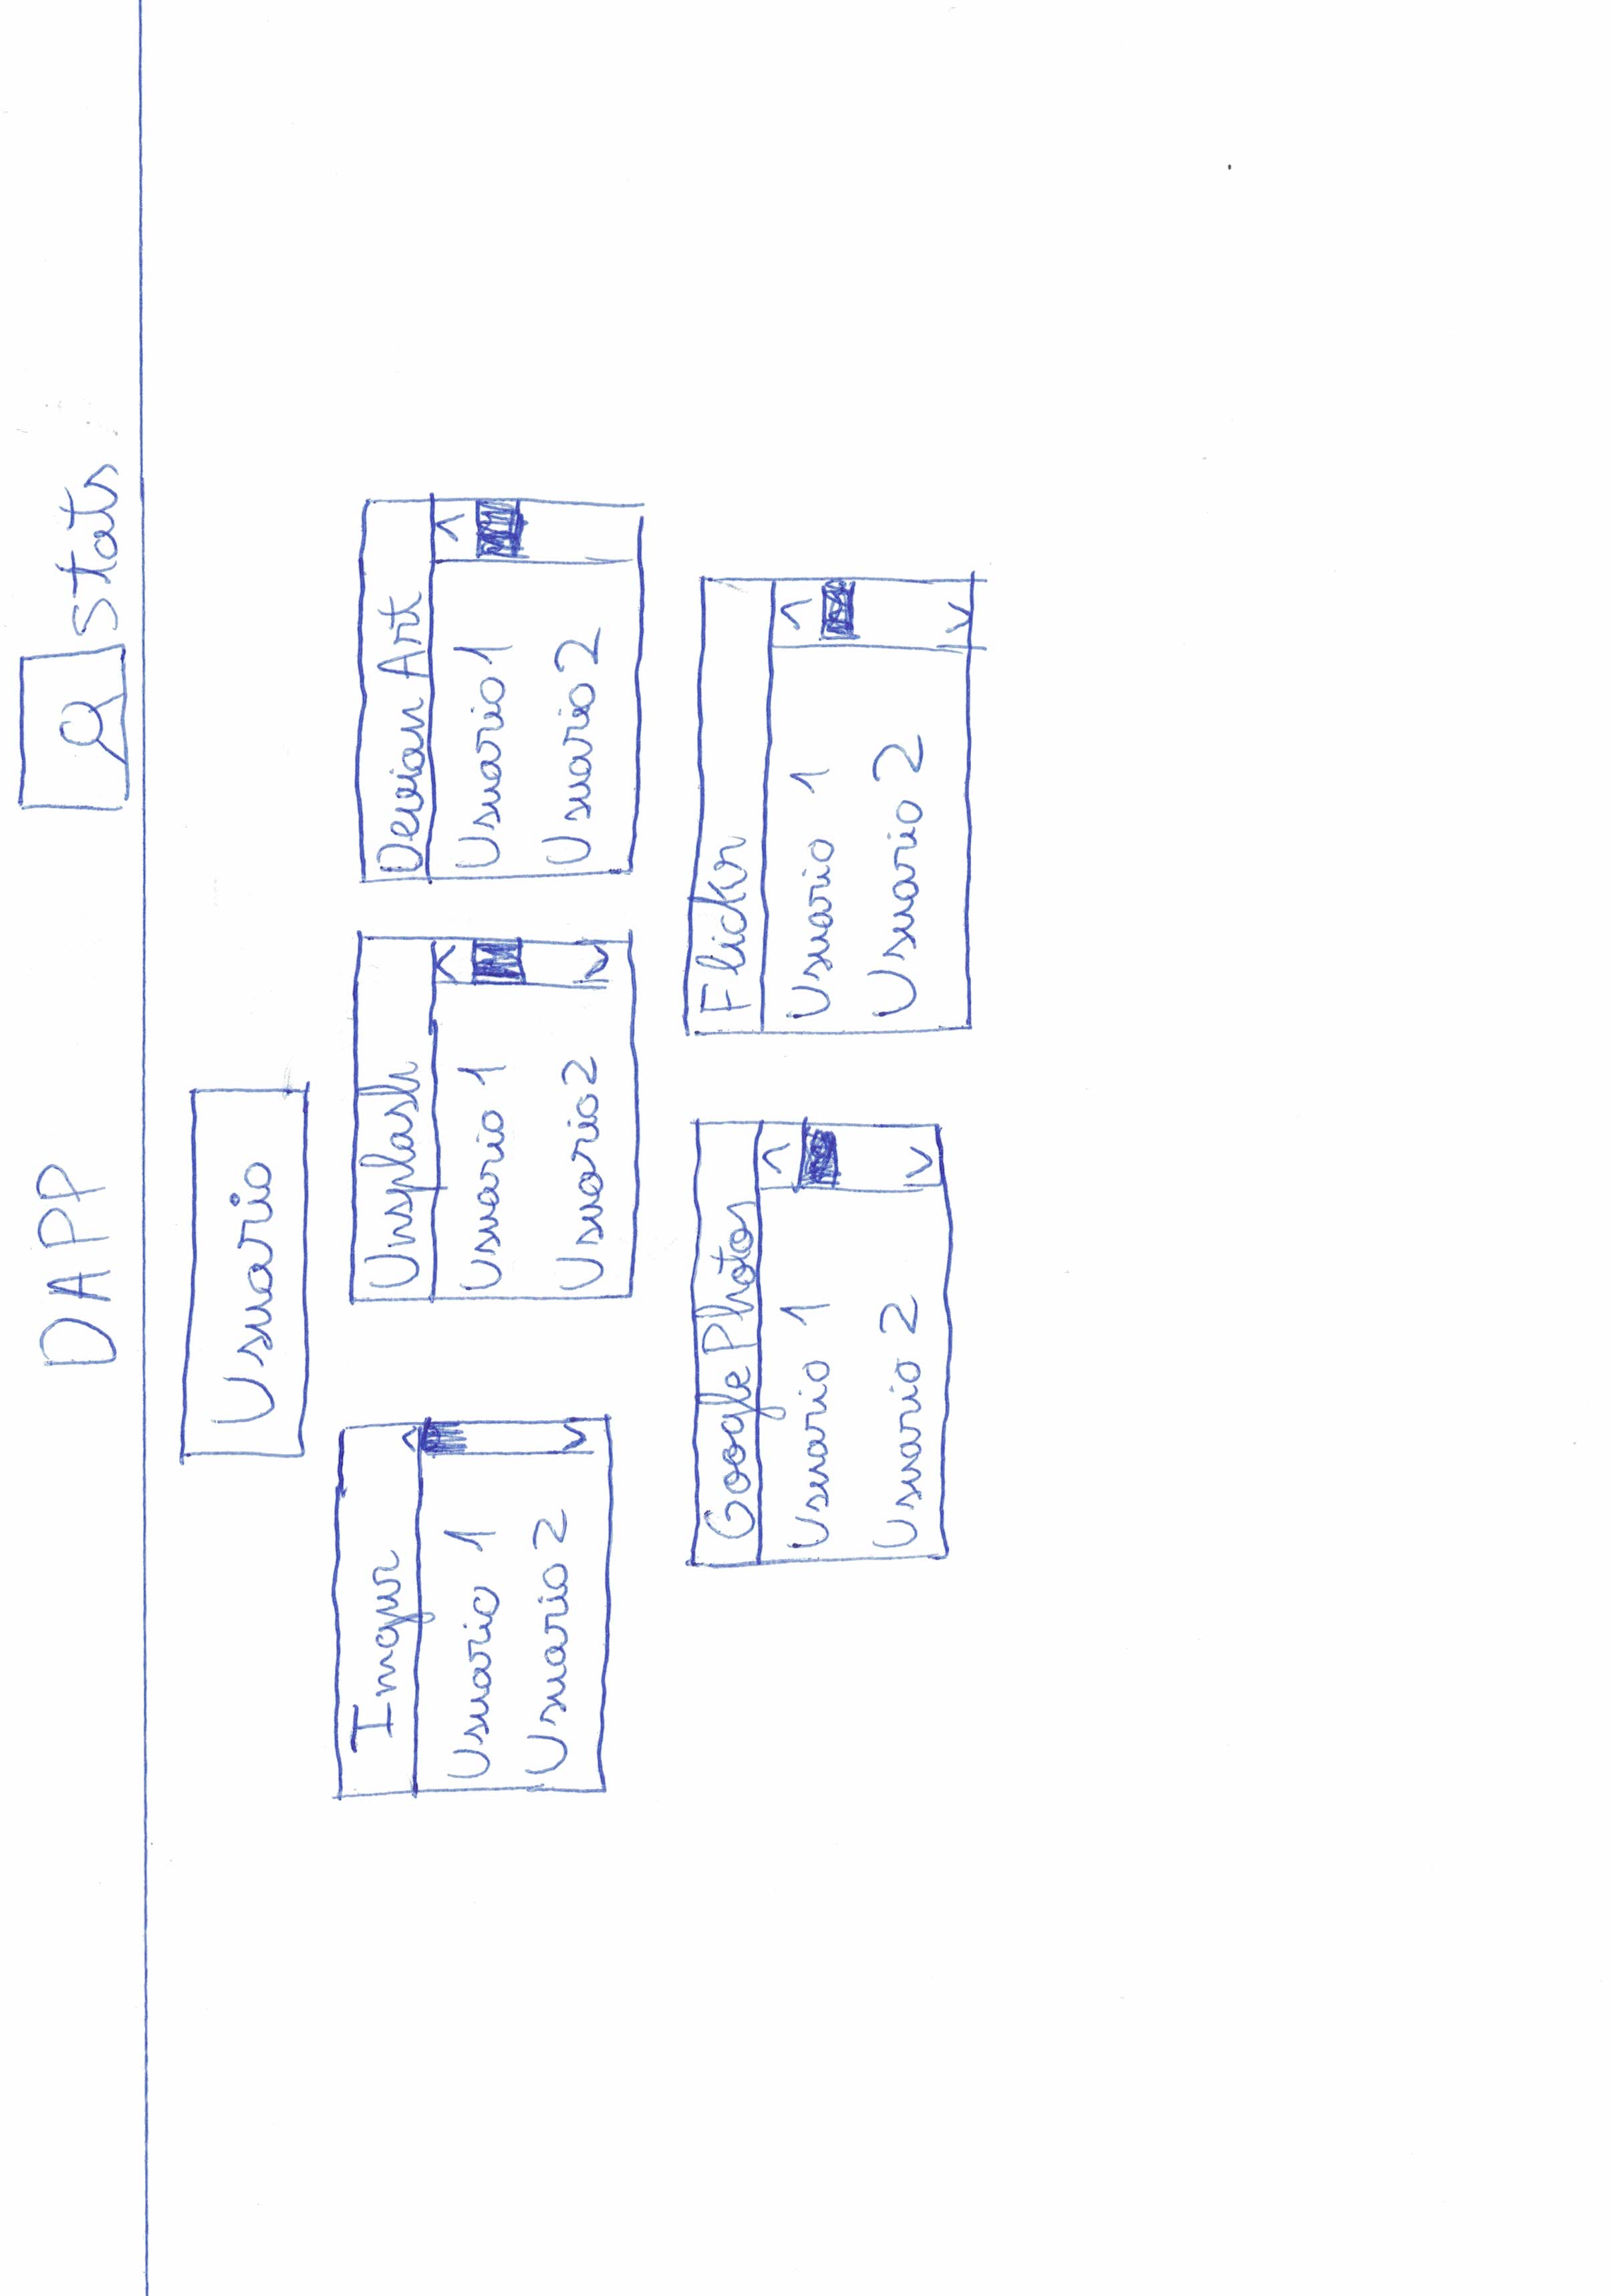 DAPP
Stats
Usuario
Imgur
Usuario 1
Usuario 2
Unsplash
Usuario 1
Usuario 2
Devian Art
Usuario 1
Usuario 2
Google Photos
Usuario 1
Usuario 2
Flickr
Usuario 1
Usuario 2